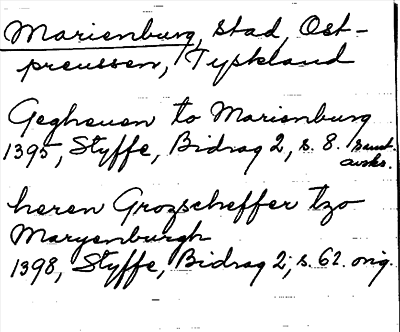 Marienburg, stad, Ost-
preussen, Tyskland
Gegheuen to Marienburg
1395, Styffe, Bidrag 2, s. 8. samt.
avskr.
heren Grozscheffer tzo
Maryenburgh
1398, Styffe, Bidrag 2, s. 62. orig.